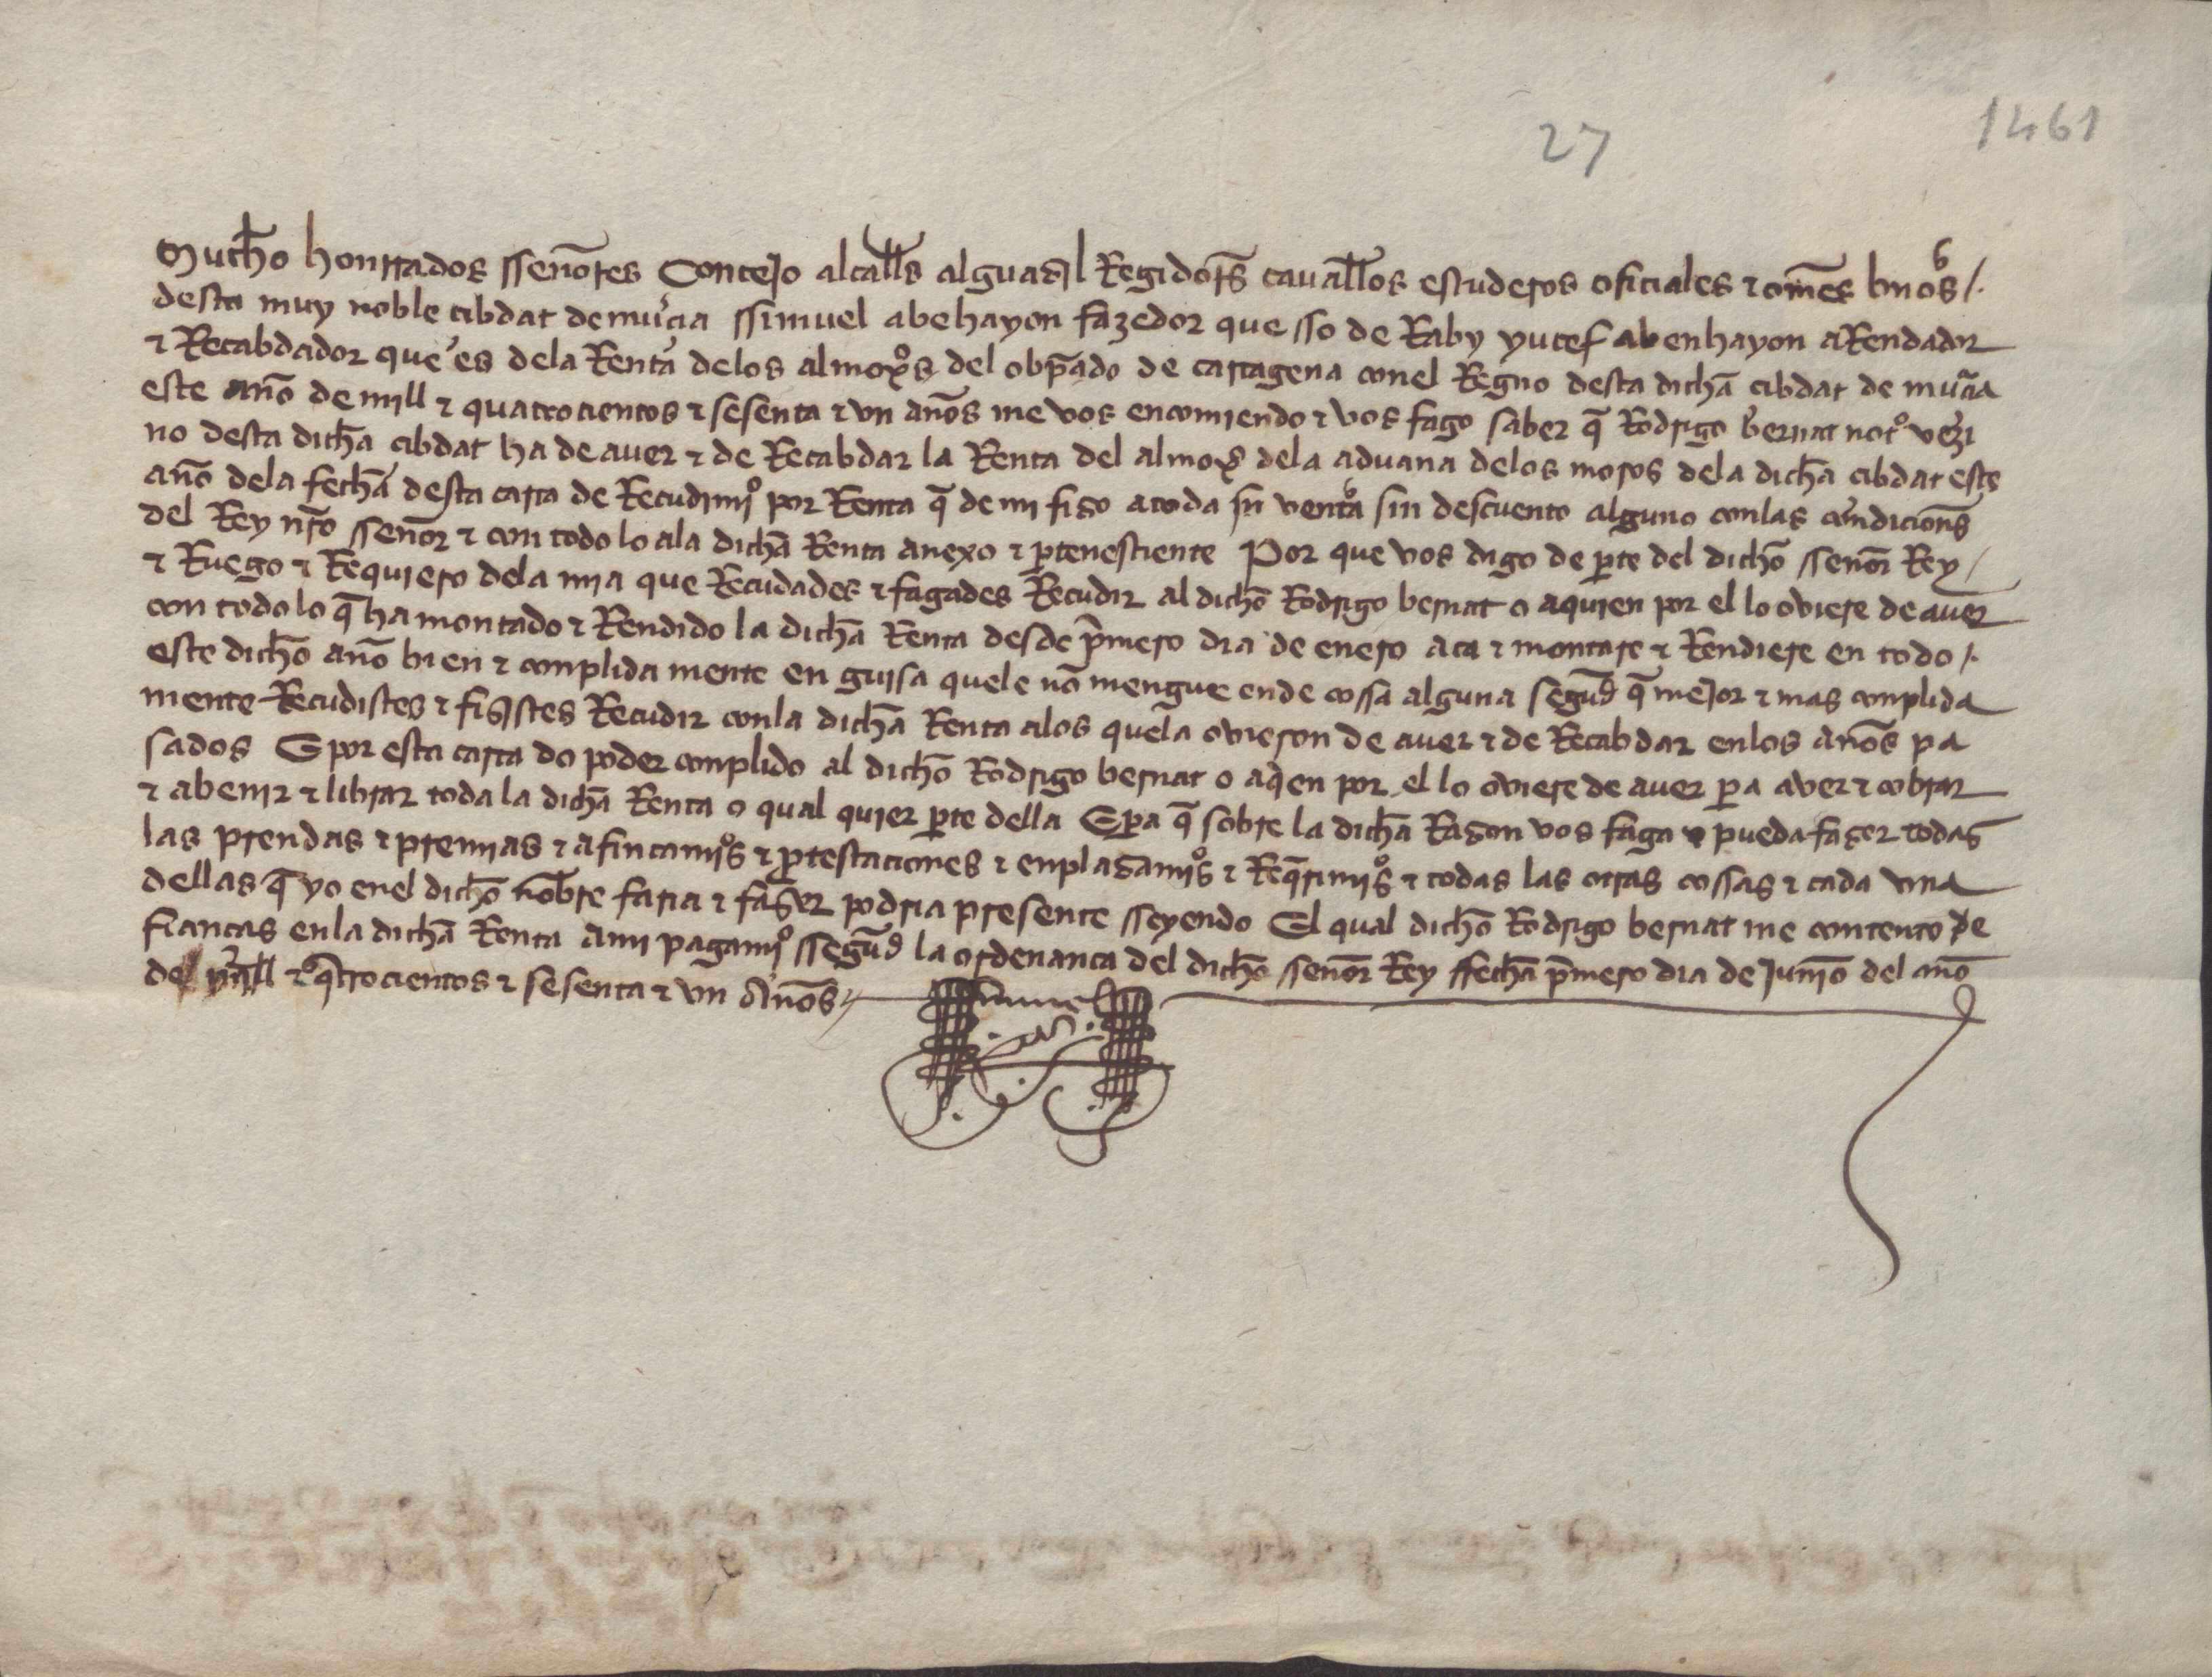 27
1461
Mucho honrrados sseñores Concejo alcalls alguazil Regidors cavallos escuderos oficiales τ omes bnos /.
desta muy noble cibdat de murcia ssimuel abehayon fazedor que sso de Raby yuçef abenhayon aRendador
τ Recabdador que es dela Renta delos almoxos del obpado de cartagena conel Regno desta dicha cibdat de mucia
este año de mill τ quatrocientos τ sesenta τ un años me vos encomiendo τ vos fago saber q̄ Rodrigo bernat noto vezi
no desta dicha cibdat ha de aver τ de Recabdar la Renta del almoxo dela aduana delos moros dela dicha cibdat este
año dela fecha desta carta de Recudimio por Renta q̄ de mi fizo a toda su ventura sin descuento alguno conlas condicions
del Rey nro sseñor τ con todo lo ala dicha Renta anexo τ ptenesciente Por que vos digo de pte del dicho sseñor Rey /
τ Ruego τ Requiero dela mia que Recudades τ fagades Recudir al dicho Rodrigo bernat o aquien por el lo oviere de aver
con todo lo q̄ ha montado τ Rendido la dicha Renta desde pmero dia de enero aca τ montare τ Rendiere en todo /.
este dicho año bien τ conplida mente en guisa quele no mengue ende cossa alguna segund q̄ mejor τ mas conplida
mente Recudistes τ fisistes Recudir conla dicha Renta alos quela ovieron de aver τ de Recabdar enlos años pa
sados E por esta carta do poder conplido al dicho Rodrigo bernat o aqen por el lo oviere de aver pa aver τ cobrar
τ abenir τ librar toda la dicha Renta o qual quier pte della E pa q̄ sobre la dicha Razon vos faga e pueda fazer todas
las prendas τ premias τ afincamios τ ptestaciones τ enplazamios τ Reqrimios τ todas las otras cossas τ cada una
dellas q̄ yo enel dicho nobre faria τ faser podria presente sseyendo El qual dicho Rodrigo bernat me contento de
fianças enla dicha Renta a mi pagamio ssegund la ordenança del dicho sseñor Rey ffecha pmero dia de junio del año
de mill τ qtrocientos τ sesenta τ un años
simuel